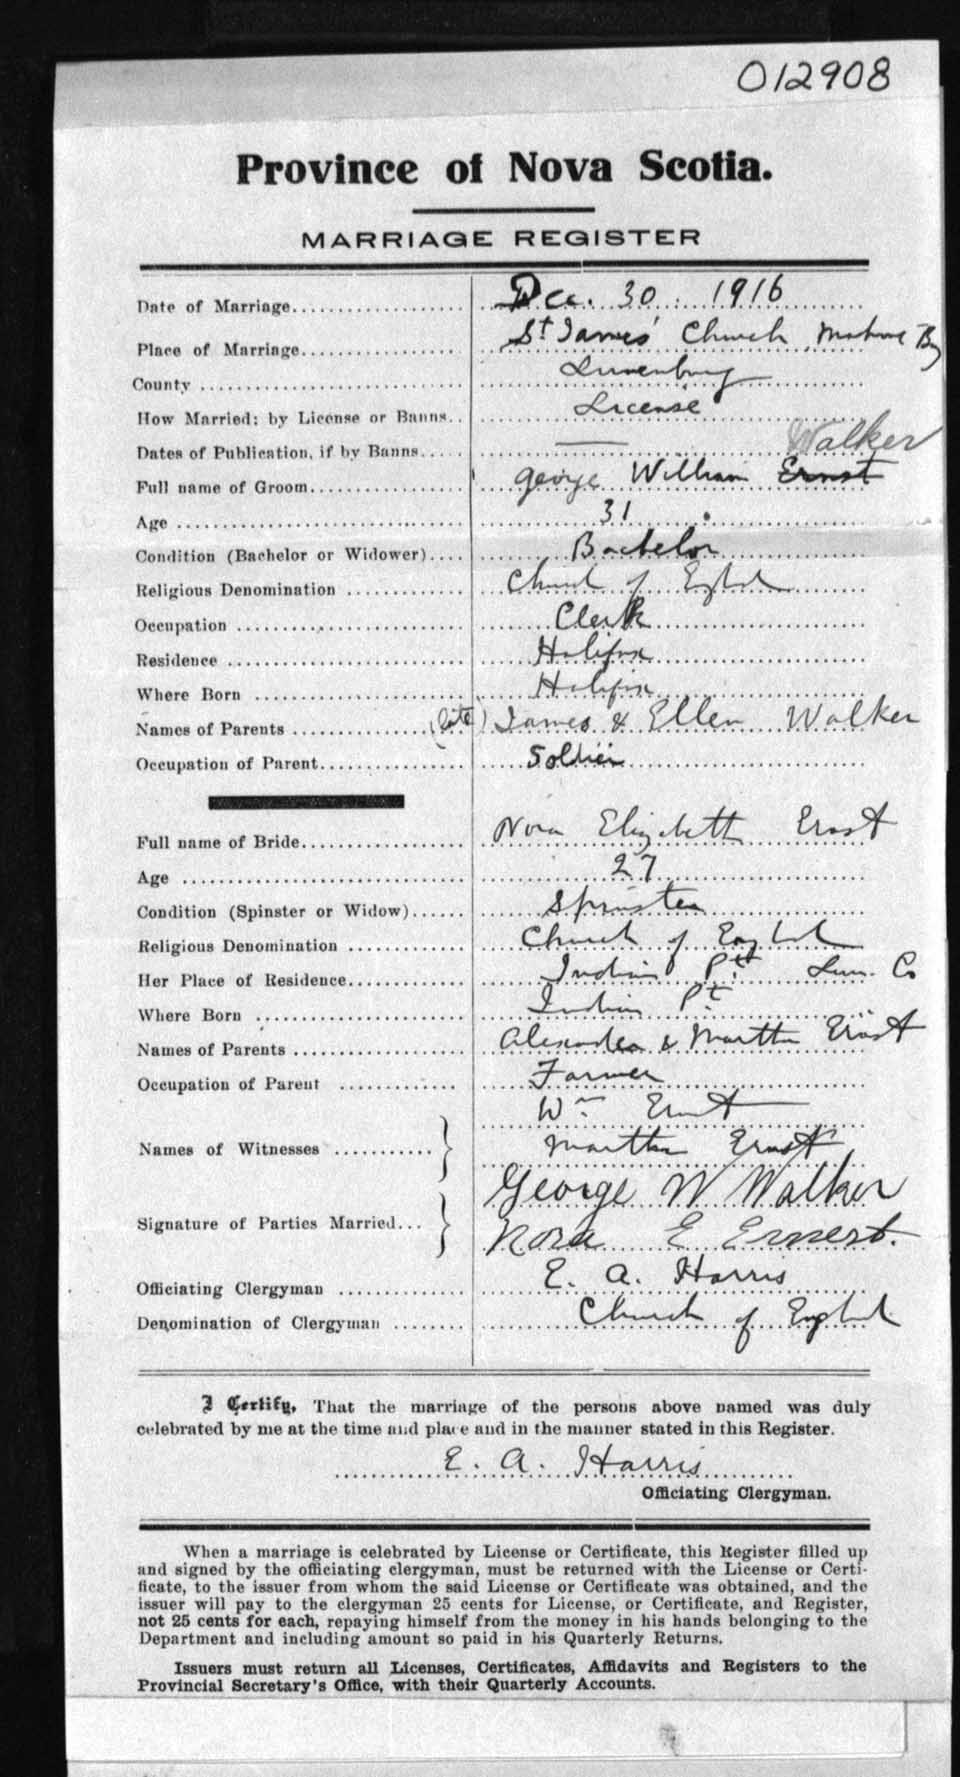 012908
Province of Nova Scotia.
MARRIAGE REGISTER
Date of Marriage Dec. 30. 1916
Place of Marriage St James' Church Mahone Bay
County Lunenburg
How Married: by License or Banns License
Dates of Publication, if by Banns —
Walker
Full name of Groom George William Ernst
Age 31
Condition (Bachelor or Widower) Bachelor
Religious Denomination Church of England
Occupation Clerk
Residence Halifax
Where Born Halifax
Names of Parents (late) James & Ellen Walker
Occupation of Parent Soldier
Full name of Bride Nora Elizabeth Ernst
Age 27
Condition (Spinster or Widow) Spinster
Religious Denomination Church of England
Her Place of Residence Indian Pt. Lun. Co
Where Born Indian Pt.
Names of Parents Alexander & Martha Ernst
Occupation of Parent Farmer
Wm Ernst
Names of Witnesses } Martha Ernst
George W Walker
Signature of Parties Married } Nora E Ernest.
Officiating Clergyman E. A. Harris
Denomination of Clergyman Church of England
I Certify, That the marriage of the persons above named was duly
celebrated by me at the time and place and in the manner stated in this Register.
E. A. Harris
Officiating Clergyman.
When a marriage is celebrated by License or Certificate, this Register filled up
and signed by the officiating clergyman, must be returned with the License or Certi-
ficate, to the issuer from whom the said License or Certificate was obtained, and the
issuer will pay to the clergyman 25 cents for License, or Certificate, and Register,
not 25 cents for each, repaying himself from the money in his hands belonging to the
Department and including amount so paid in his Quarterly Returns.
Issuers must return all Licenses, Certificates, Affidavits and Registers to the
Provincial Secretary's Office, with their Quarterly Accounts.